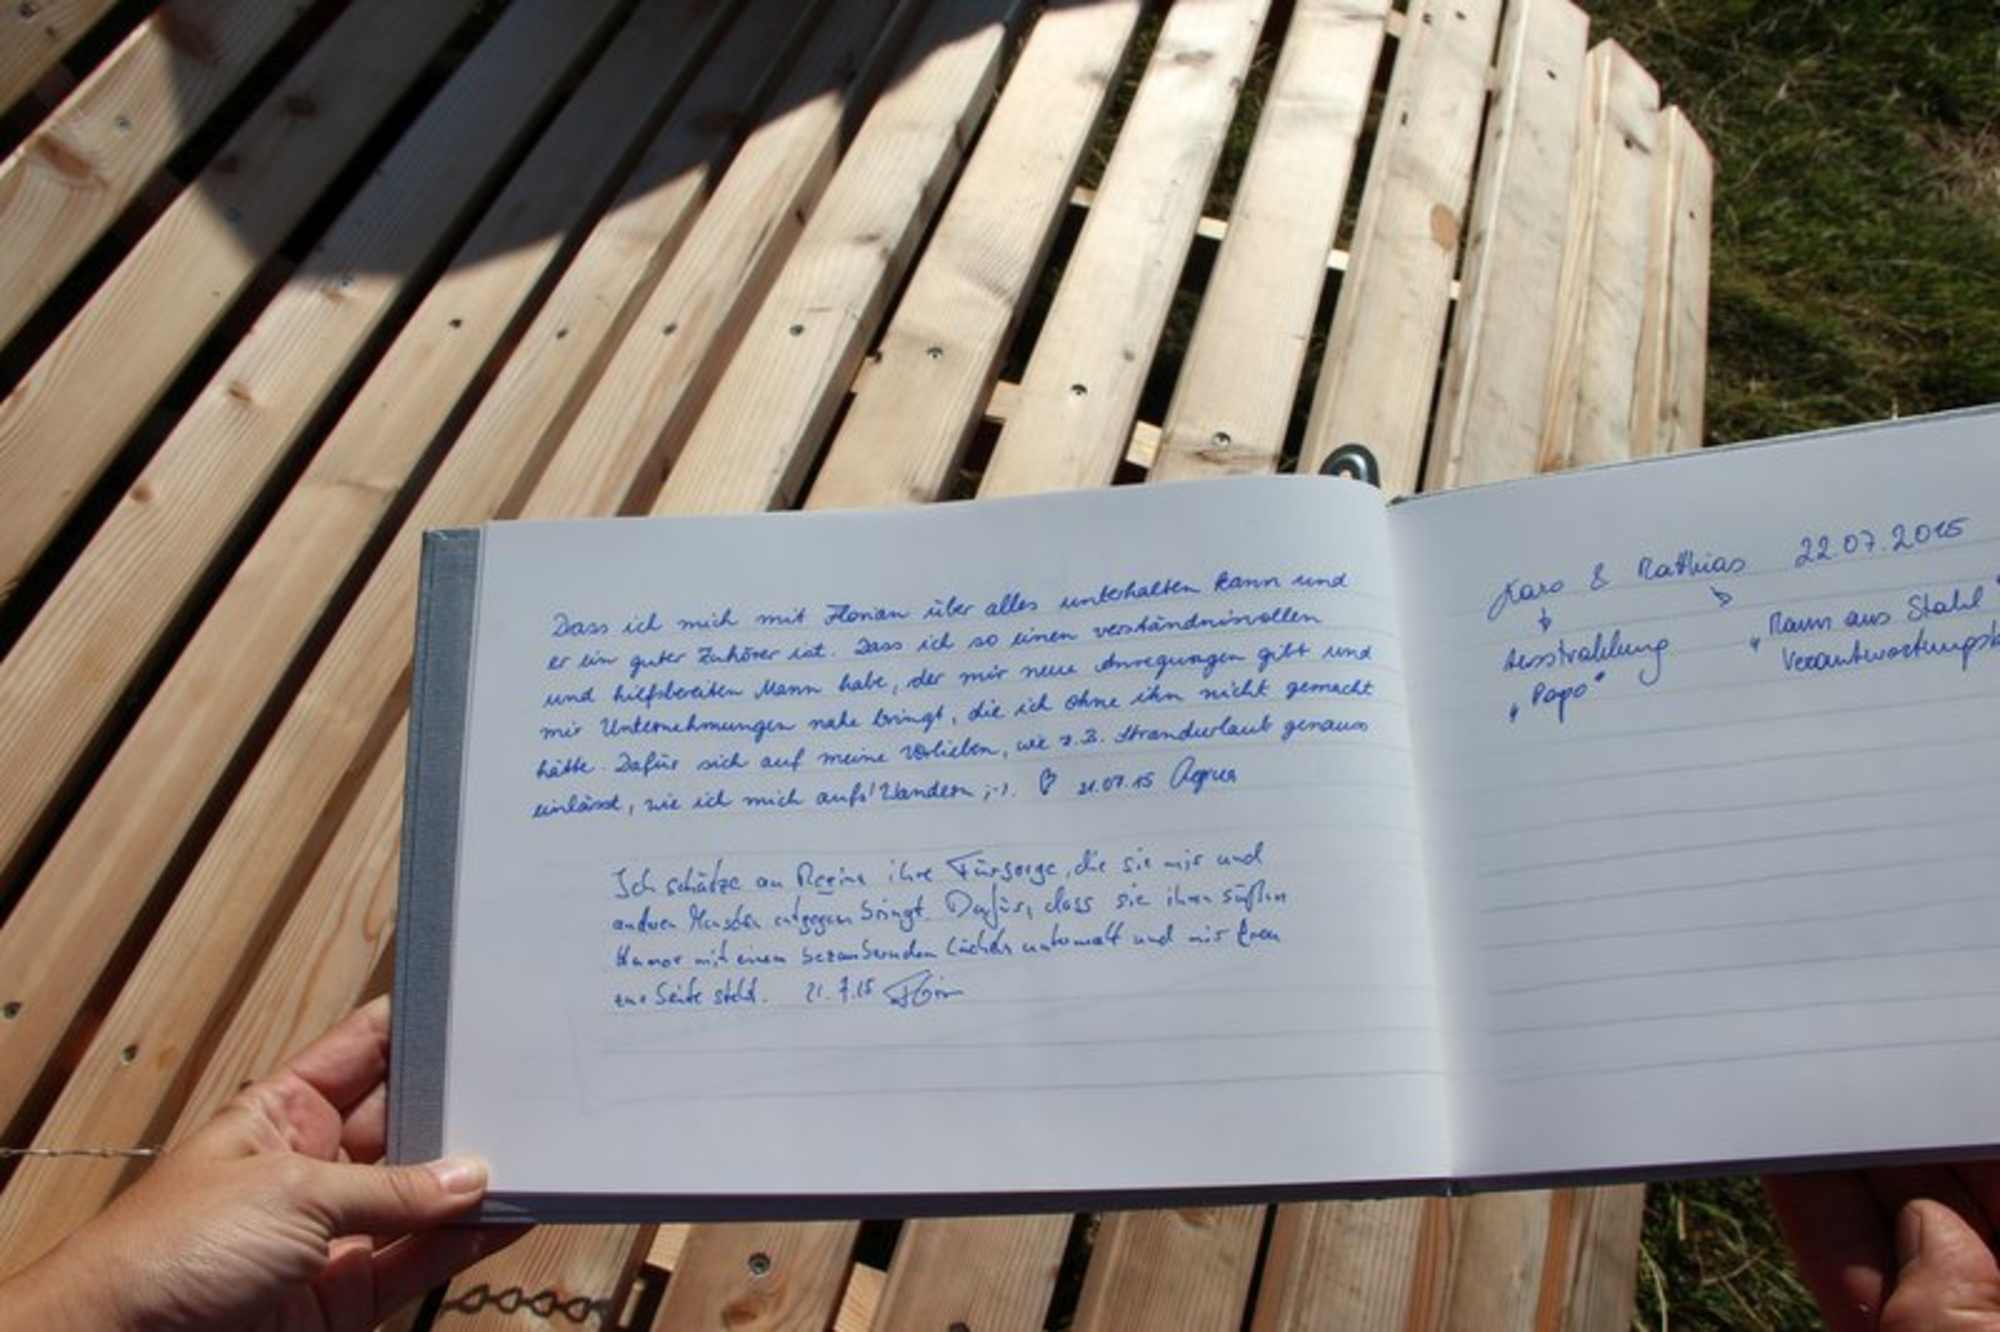 Dass ich mich mit Florian über alles unterhalten kann und
er ein guter Zuhörer ist. Dass ich so einen verständnisvollen
und hilfsbereiten Mann habe, der mir neue Anregungen gibt und
mir Unternehmungen nahe bringt, die ich ohne ihn nicht gemacht
hätte. Dafür sich auf meine Vorlieben, wie z.B. Strandurlaub genauso
einlässt, wie ich mich aufs Wandern ;-). ♡ 21.07.15
Ich schätze an ihre Fürsorge, die sie mir und
andren Menschen entgegen bringt. Dafür, dass sie ihren süßen
Humor mit einem bezaubernden Lächeln untermalt und mir treu
zur Seite steht. 21.7.15
Karo & Matthias 22.07.2015
Ausstrahlung „Mann aus Stahl"
„Papo"